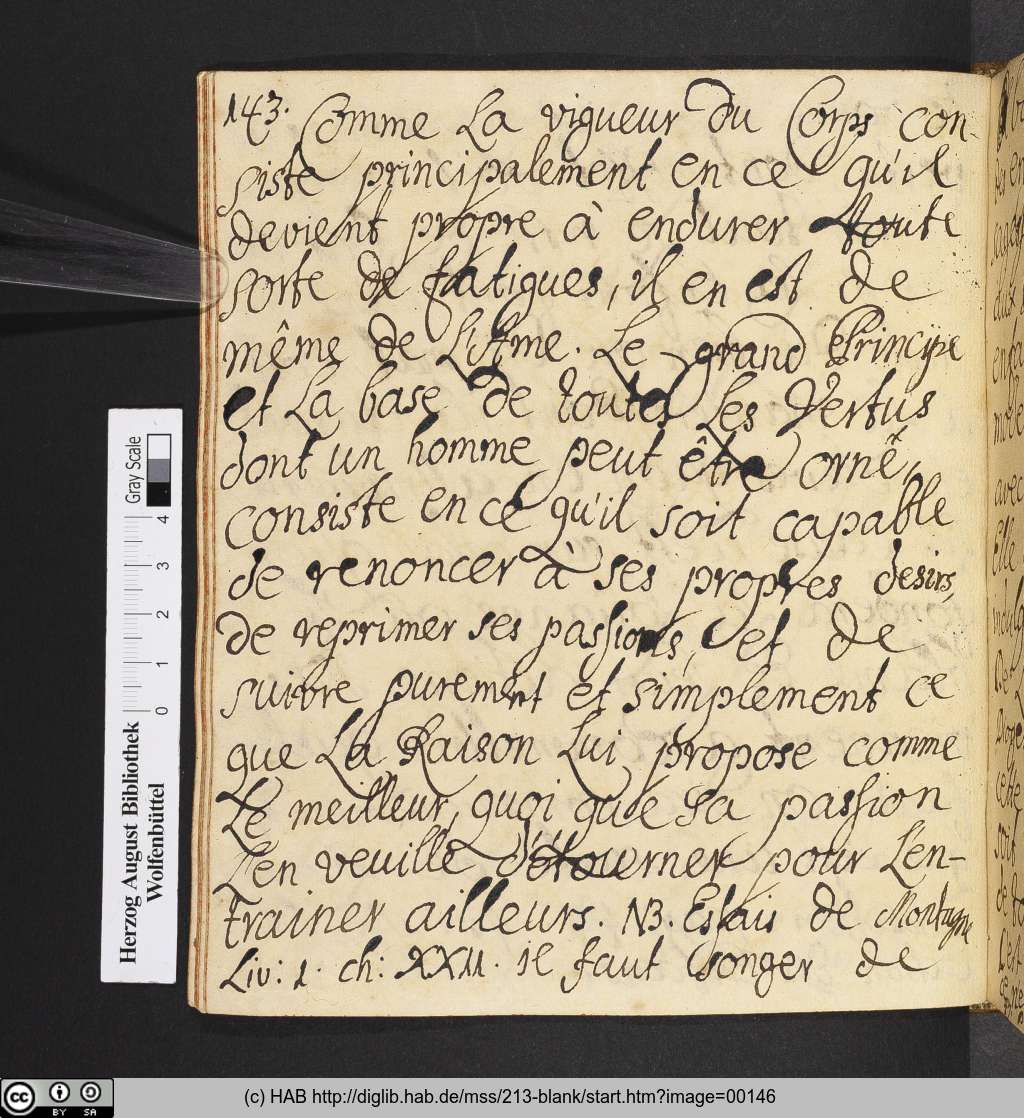 143. Comme La vigueur du Corps con-
siste principalement en ce qu'il
devient propre à endurer toute
sorte de fatigues, il en est de
même de L'Ame. Le grand Principe
et La base de toutes Les Vertus
dont un homme peut être orné,
consiste en ce qu'il soit capable
de renoncer à ses propres desirs,
de reprimer ses passions, et de
suivre purement et simplement ce
que La Raison Lui propose comme
Le meilleur, quoi que sa passion
L'en veuille détourner pour L'en-
trainer ailleurs. NB. Essais de Montagne
Liv: 1. ch: XXII. il faut songer de
Gray Scale
4
3
2
1
0
Herzog August Bibliothek
Wolfenbüttel
cc BY SA
(c) HAB http://diglib.hab.de/mss/213-blank/start.htm?image=00146